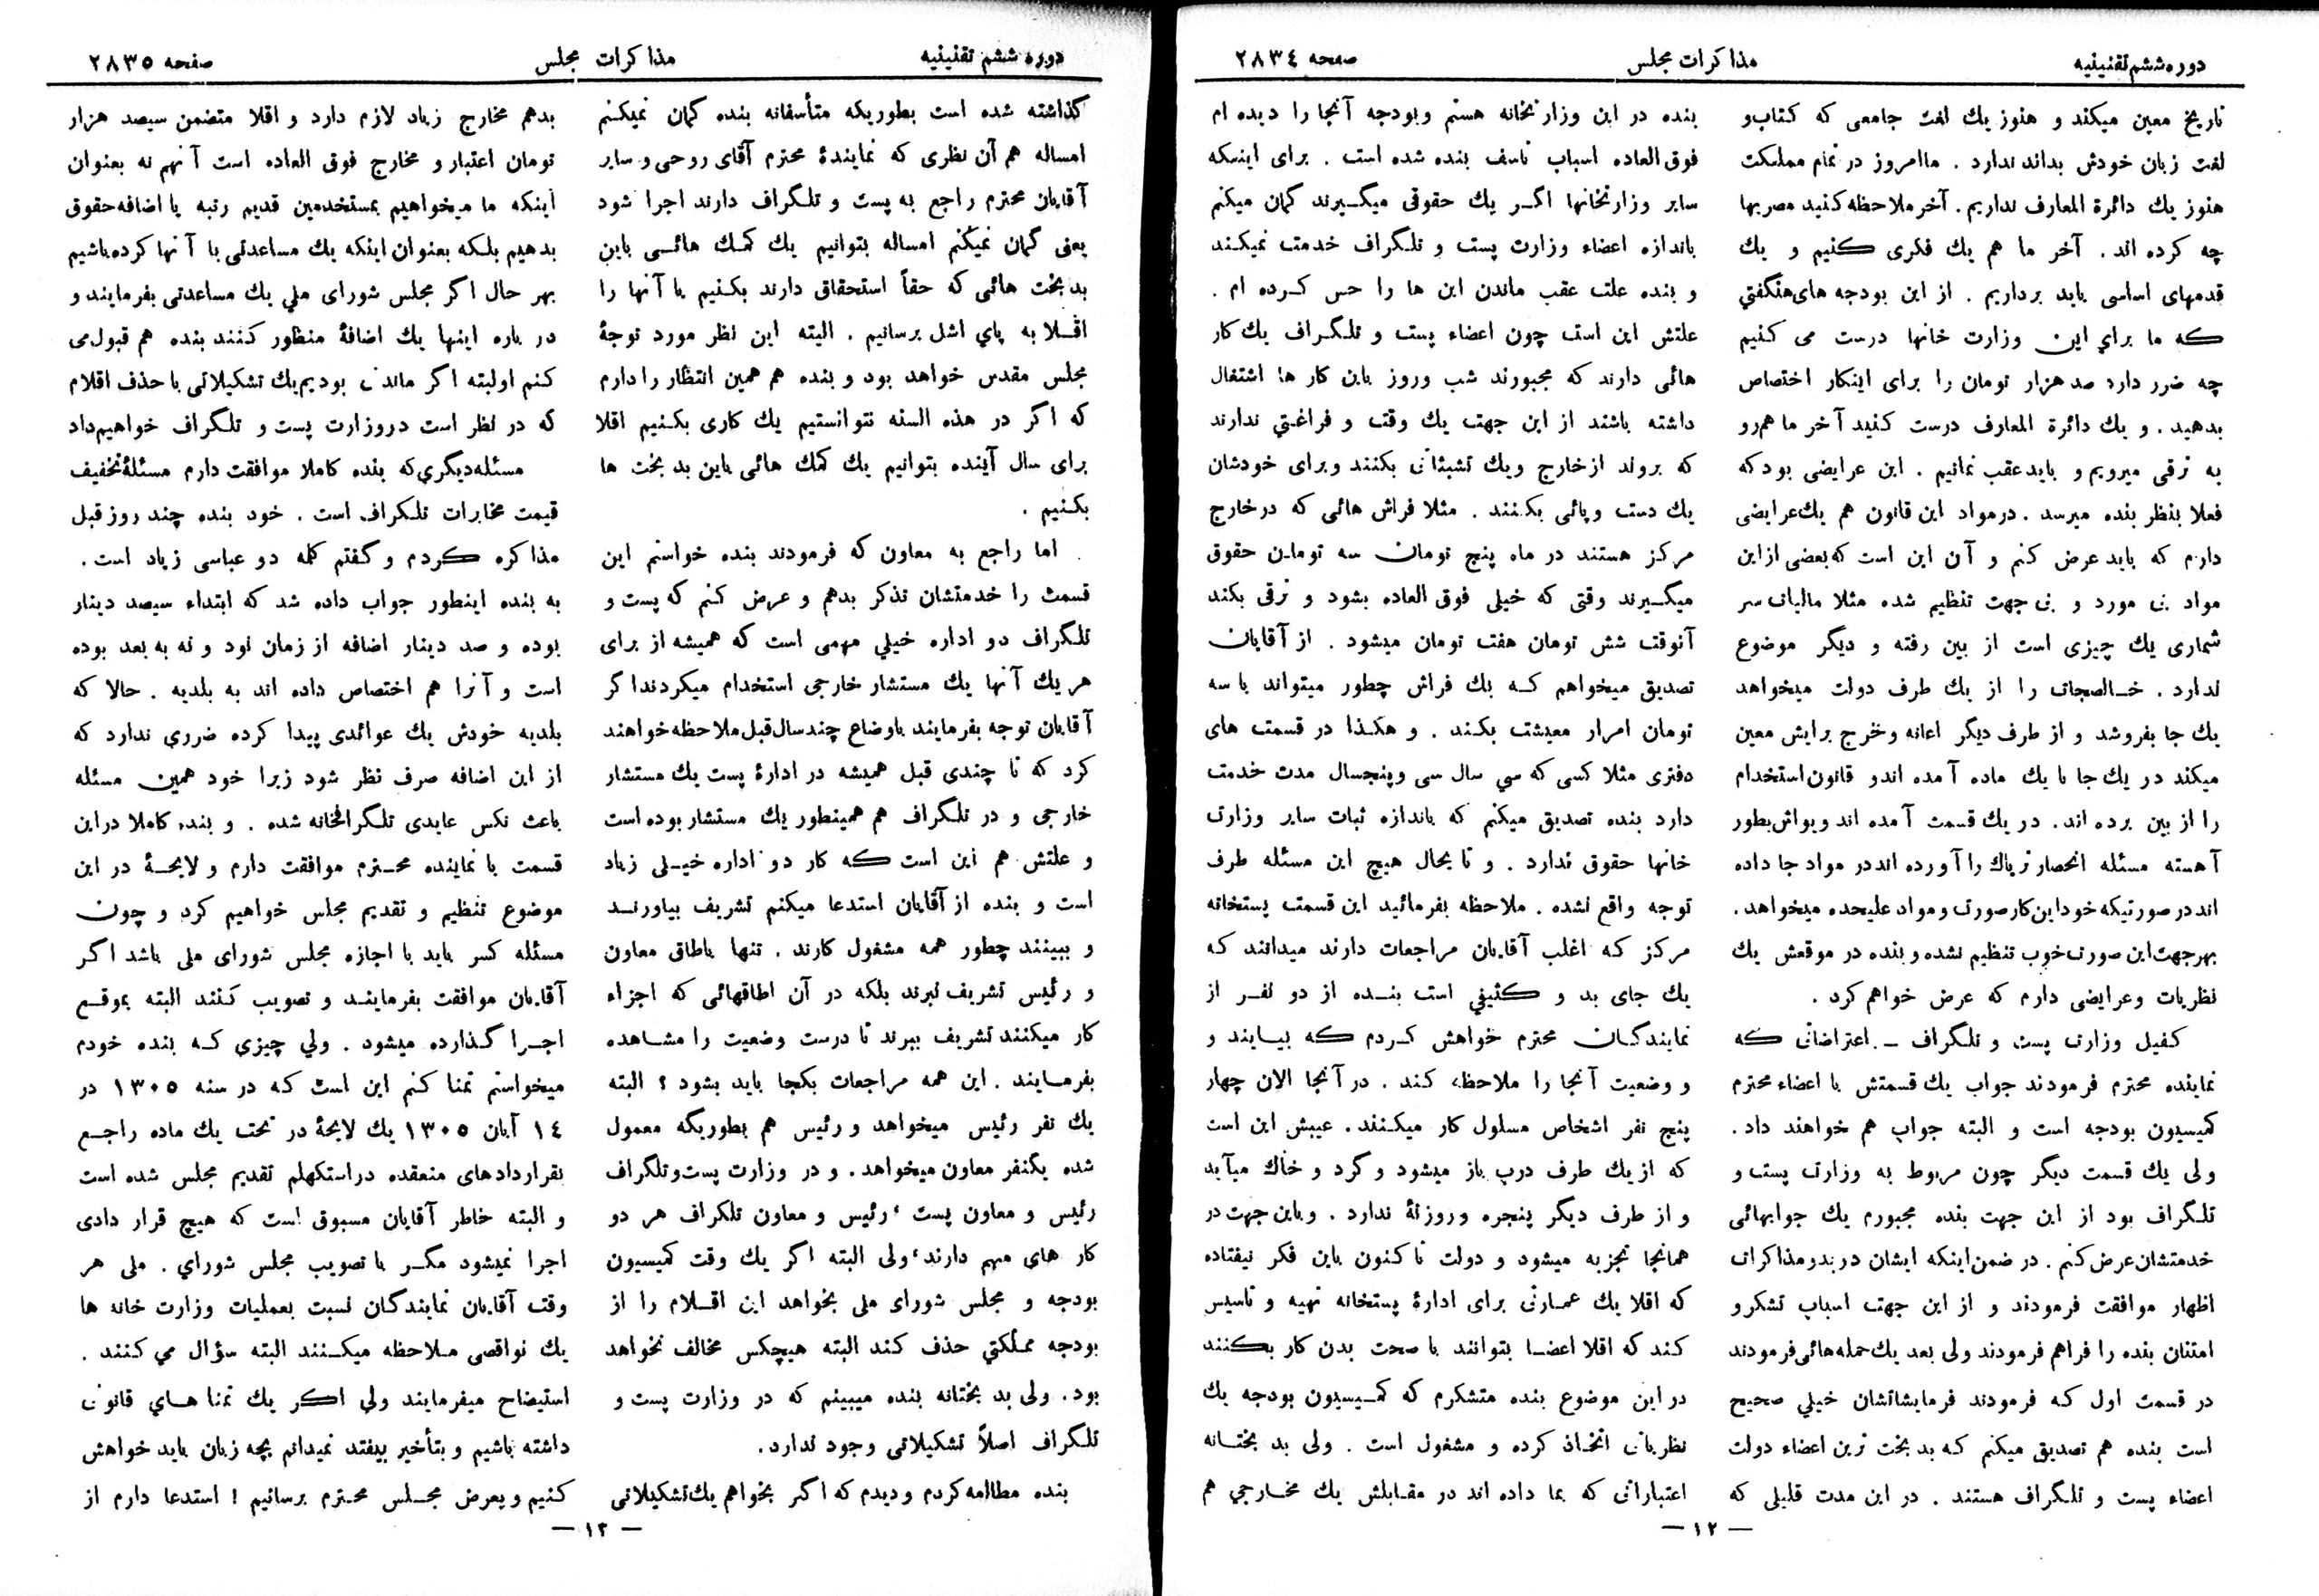 دوره ششم تقنینیه
مذاکرات مجلس
صفحه ۲۸۳٤
تاریخ معین میکند و هنوز یك لغت جامعی که کتاب و
لغت زبان خودش بداند ندارد . ما امروز در تمام مملکت
هنوز یك دائرة المعارف نداریم . آخر ملاحظه کنید مصریها
چه کرده اند . آخر ما هم یك فکری کنیم و یك
قدمهای اساسی باید برداریم . از این بودجه های هنگفتی
که ما برای این وزارت خانها درست می کنیم
چه ضرر دارد صد هزار تومان را برای اینکار اختصاص
بدهید . و یك دائرة المعارف درست کنید آخر ما هم رو
به ترقی میرویم و باید عقب نمانیم . این عرایضی بود که
فعلا بنظر بنده میرسد . در مواد این قانون هم یك عرایضی
دارم که باید عرض کنم و آن این است که بعضی از این
مواد بی مورد و بی جهت تنظیم شده مثلا مالیات سر
شماری یك چیزی است از بین رفته و دیگر موضوع
ندارد . خالصجات را از یك طرف دولت میخواهد
یك جا بفروشد و از طرف دیگر اعانه و خرج برایش معین
میکند در یك جا با یك ماده آمده اند و قانون استخدام
را از بین برده اند . در یك قسمت آمده اند و یواش بطور
آهسته مسئله انحصار تریاك را آورده اند در مواد جا داده
اند در صورتیکه خود این کار صورت و مواد علیحده میخواهد .
بهر جهت این صورت خوب تنظیم نشده و بنده در موقعش یك
نظریات و عرایضی دارم که عرض خواهم کرد .
کفیل وزارت پست و تلگراف ـ اعتراضاتی که
نماینده محترم فرمودند جواب یك قسمتش با اعضاء محترم
کمیسیون بودجه است و البته جواب هم خواهند داد .
ولی یك قسمت دیگر چون مربوط به وزارت پست و
تلگراف بود از این جهت بنده مجبورم یك جوابهائی
خدمتشان عرض کنم . در ضمن اینکه ایشان در بدو مذاکرات
اظهار موافقت فرمودند و از این جهت اسباب تشکر و
امتنان بنده را فراهم فرمودند ولی بعد یك حمله هائی فرمودند
در قسمت اول که فرمودند فرمایشاتشان خیلی صحیح
است بنده هم تصدیق میکنم که بد بخت ترین اعضاء دولت
اعضاء پست و تلگراف هستند . در این مدت قلیلی که
بنده در این وزارتخانه هستم و بودجه آنجا را دیده ام
فوق العاده اسباب تاسف بنده شده است . برای اینکه
سایر وزارتخانها اگر یك حقوقی میگیرند گمان میکنم
باندازه اعضاء وزارت پست و تلگراف خدمت نمیکنند
و بنده علت عقب ماندن این ها را حس کرده ام .
علتش این است چون اعضاء پست و تلگراف یك کار
هائی دارند که مجبورند شب و روز باین کار ها اشتغال
داشته باشند از این جهت یك وقت و فراغتی ندارند
که بروند از خارج و یك تشبثاتی بکنند و برای خودشان
یك دست و پائی بکنند . مثلا فراش هائی که در خارج
مرکز هستند در ماه پنج تومان سه تومان حقوق
میگیرند وقتی که خیلی فوق العاده بشود و ترقی بکند
آنوقت شش تومان هفت تومان میشود . از آقایان
تصدیق میخواهم که یك فراش چطور میتواند با سه
تومان امرار معیشت بکند . و هکذا در قسمت های
دفتری مثلا کسی که سی سال سی و پنجسال مدت خدمت
دارد بنده تصدیق میکنم که باندازه ثبات سایر وزارت
خانها حقوق ندارد . و تا بحال هیچ این مسئله طرف
توجه واقع نشده . ملاحظه بفرمائید این قسمت پستخانه
مرکز که اغلب آقایان مراجعات دارند میدانند که
یك جای بد و کثیفی است بنده از دو نفر از
نمایندگان محترم خواهش کردم که بیایند و
و وضعیت آنجا را ملاحظه کند . در آنجا الان چهار
پنج نفر اشخاص مسلول کار میکنند . عیبش این است
که از یك طرف درب باز میشود و گرد و خاك میآید
و از طرف دیگر پنجره و روزنهٔ ندارد . و باین جهت در
همانجا تجزیه میشود و دولت تا کنون باین فکر نیفتاده
که اقلا یك عمارتی برای ادارهٔ پستخانه تهیه و تاسیس
کند که اقلا اعضا بتوانند با صحت بدن کار بکنند
در این موضوع بنده متشکرم که کمیسیون بودجه یك
نظریاتی اتخاذ کرده و مشغول است . ولی بد بختانه
اعتباراتی که بما داده اند در مقابلش یك مخارجی هم
— ۱۲ —
دوره ششم تقنینیه
مذاکرات مجلس
صفحه ۲۸۳٥
گذاشته شده است بطوریکه متأسفانه بنده گمان نمیکنم
امساله هم آن نظری که نمایندهٔ محترم آقای روحی و سایر
آقایان محترم راجع به پست و تلگراف دارند اجرا شود
یعنی گمان نمیکنم امساله بتوانیم یك کمك هائی باین
بدبخت هائی که حقاً استحقاق دارند بکنیم یا آنها را
اقلا به پای اشل برسانیم . البته این نظر مورد توجهٔ
مجلس مقدس خواهد بود و بنده هم همین انتظار را دارم
که اگر در هذه السنه نتوانستیم یك کاری بکنیم اقلا
برای سال آینده بتوانیم یك کمك هائی باین بد بخت ها
بکنیم .
اما راجع به معاون که فرمودند بنده خواستم این
قسمت را خدمتشان تذکر بدهم و عرض کنم که پست و
تلگراف دو اداره خیلی مهمی است که همیشه از برای
هر یك آنها یك مستشار خارجی استخدام میکردند اگر
آقایان توجه بفرمایند باوضاع چند سال قبل ملاحظه خواهند
کرد که تا چندی قبل همیشه در ادارهٔ پست یك مستشار
خارجی و در تلگراف هم همینطور یك مستشار بوده است
و علتش هم این است که کار دو اداره خیلی زیاد
است و بنده از آقایان استدعا میکنم تشریف بیاورند
و ببینند چطور همه مشغول کارند . تنها باطاق معاون
و رئیس تشریف نبرند بلکه در آن اطاقهائی که اجزاء
کار میکنند تشریف ببرند تا درست وضعیت را مشاهده
بفرمایند . این همه مراجعات بکجا باید بشود ؟ البته
یك نفر رئیس میخواهد و رئیس هم بطوریکه معمول
شده یکنفر معاون میخواهد . و در وزارت پست و تلگراف
رئیس و معاون پست ، رئیس و معاون تلگراف هر دو
کار های مهم دارند ، ولی البته اگر یك وقت کمیسیون
بودجه و مجلس شورای ملی بخواهد این اقلام را از
بودجه مملکتی حذف کند البته هیچکس مخالف نخواهد
بود . ولی بد بختانه بنده میبینم که در وزارت پست و
تلگراف اصلاً تشکیلاتی وجود ندارد .
بنده مطالعه کردم و دیدم که اگر بخواهم یك تشکیلاتی
بدهم مخارج زیاد لازم دارد و اقلا متضمن سیصد هزار
تومان اعتبار و مخارج فوق العاده است آنهم نه بعنوان
اینکه ما میخواهیم بمستخدمین قدیم رتبه یا اضافه حقوق
بدهیم بلکه بعنوان اینکه یك مساعدتی با آنها کرده باشیم
بهر حال اگر مجلس شورای ملی یك مساعدتی بفرمایند و
در باره اینها یك اضافهٔ منظور کنند بنده هم قبول می
کنم و البته اگر ماندنی بودیم یك تشکیلاتی با حذف اقلام
که در نظر است در وزارت پست و تلگراف خواهیم داد
مسئله دیگری که بنده کاملا موافقت دارم مسئلهٔ تخفیف
قیمت مخابرات تلگراف است . خود بنده چند روز قبل
مذاکره کردم و گفتم کلمه دو عباسی زیاد است .
به بنده اینطور جواب داده شد که ابتداء سیصد دینار
بوده و صد دینار اضافه از زمان نود و نه به بعد بوده
است و آنرا هم اختصاص داده اند به بلدیه . حالا که
بلدیه خودش یك عوائدی پیدا کرده ضرری ندارد که
از این اضافه صرف نظر شود زیرا خود همین مسئله
باعث نکس عایدی تلگرافخانه شده . و بنده کاملا در این
قسمت با نماینده محترم موافقت دارم و لایحهٔ در این
موضوع تنظیم و تقدیم مجلس خواهیم کرد و چون
مسئله کسر باید با اجازه مجلس شورای ملی باشد اگر
آقایان موافقت بفرمایند و تصویب کنند البته بموقع
اجرا گذارده میشود . ولی چیزی که بنده خودم
میخواستم تمنا کنم این است که در سنه ۱۳۰٥ در
۱٤ آبان ۱۳۰٥ یك لایحهٔ در تحت یك ماده راجع
بقراردادهای منعقده در استکهلم تقدیم مجلس شده است
و البته خاطر آقایان مسبوق است که هیچ قرار دادی
اجرا نمیشود مگر با تصویب مجلس شورای . ملی هر
وقت آقایان نمایندگان نسبت بعملیات وزارت خانه ها
یك نواقصی ملاحظه میکنند البته سؤال می کنند .
استیضاح میفرمایند ولی اگر یك تمنا های قانونی
داشته باشیم و بتأخیر بیفتد نمیدانم بچه زبان باید خواهش
کنیم و بعرض مجلس محترم برسانیم ! استدعا دارم از
— ۱۳ —